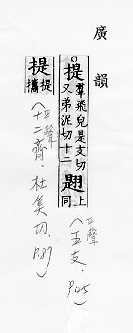 廣韻
提 羣飛皃是支切
又弟泥切十二
同
五支.
提 提
攜
十二齊.杜奚切.